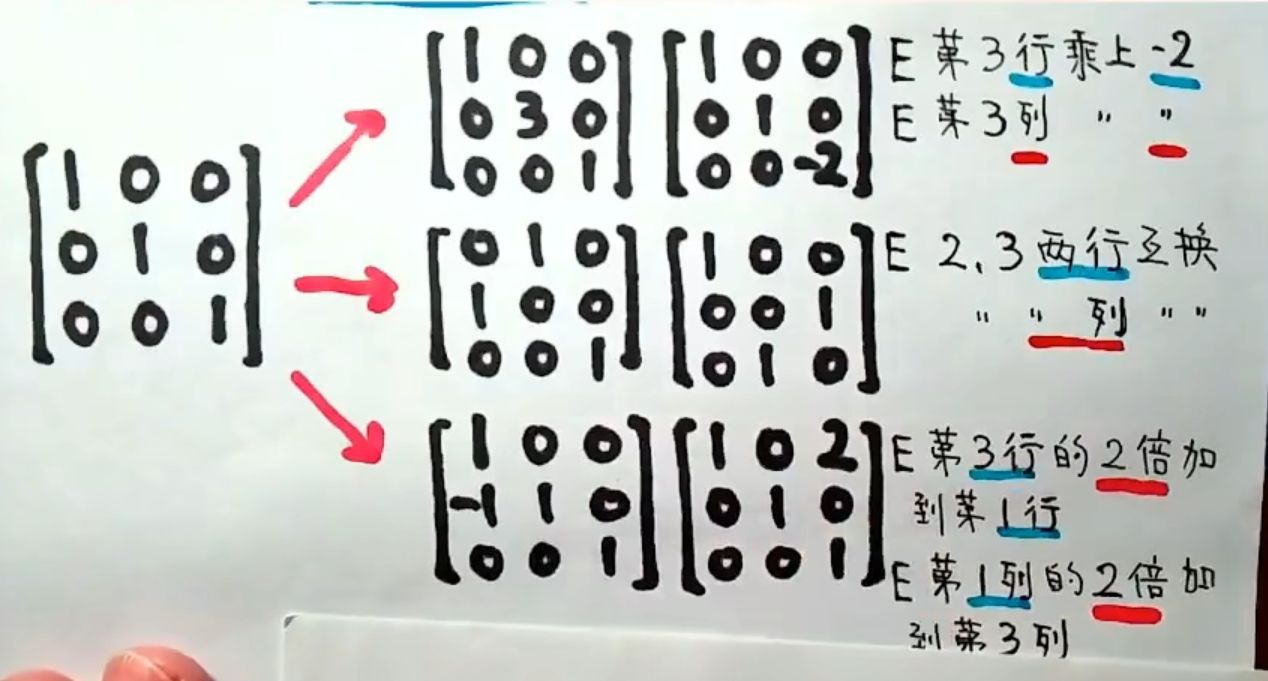 1 0 0
0 1 0
0 0 1
1 0 0
0 3 0
0 0 1
1 0 0
0 1 0
0 0 -2
E 第3行乘上 -2
E 第3列 〃 〃
0 1 0
1 0 0
0 0 1
1 0 0
0 0 1
0 1 0
E 2、3 两行互换
〃 〃 列 〃 〃
1 0 0
-1 1 0
0 0 1
1 0 2
0 1 0
0 0 1
E 第3行的2倍加
到第1行
E 第1列的2倍加
到第3列